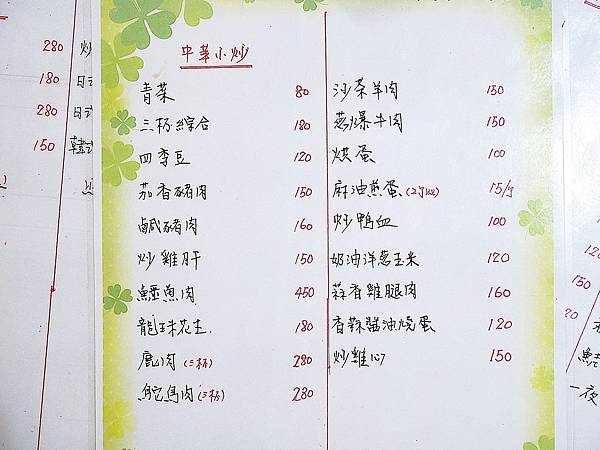 280 炒
180 日式
280 日式
150 韓式
中華小炒
青菜 80
三杯綜合 180
四季豆 120
茄香豬肉 150
鹹豬肉 160
炒雞肝 150
鱷魚肉 450
龍珠花生 180
鹿肉(三杯) 280
鴕鳥肉(三杯) 280
沙茶羊肉 150
蔥爆牛肉 150
烘蛋 100
麻油煎蛋 15/
炒鴨血 100
奶油洋蔥玉米 120
蒜香雞腿肉 160
香辣醬油燒蛋 120
炒雞心 150
100
120
150
一夜